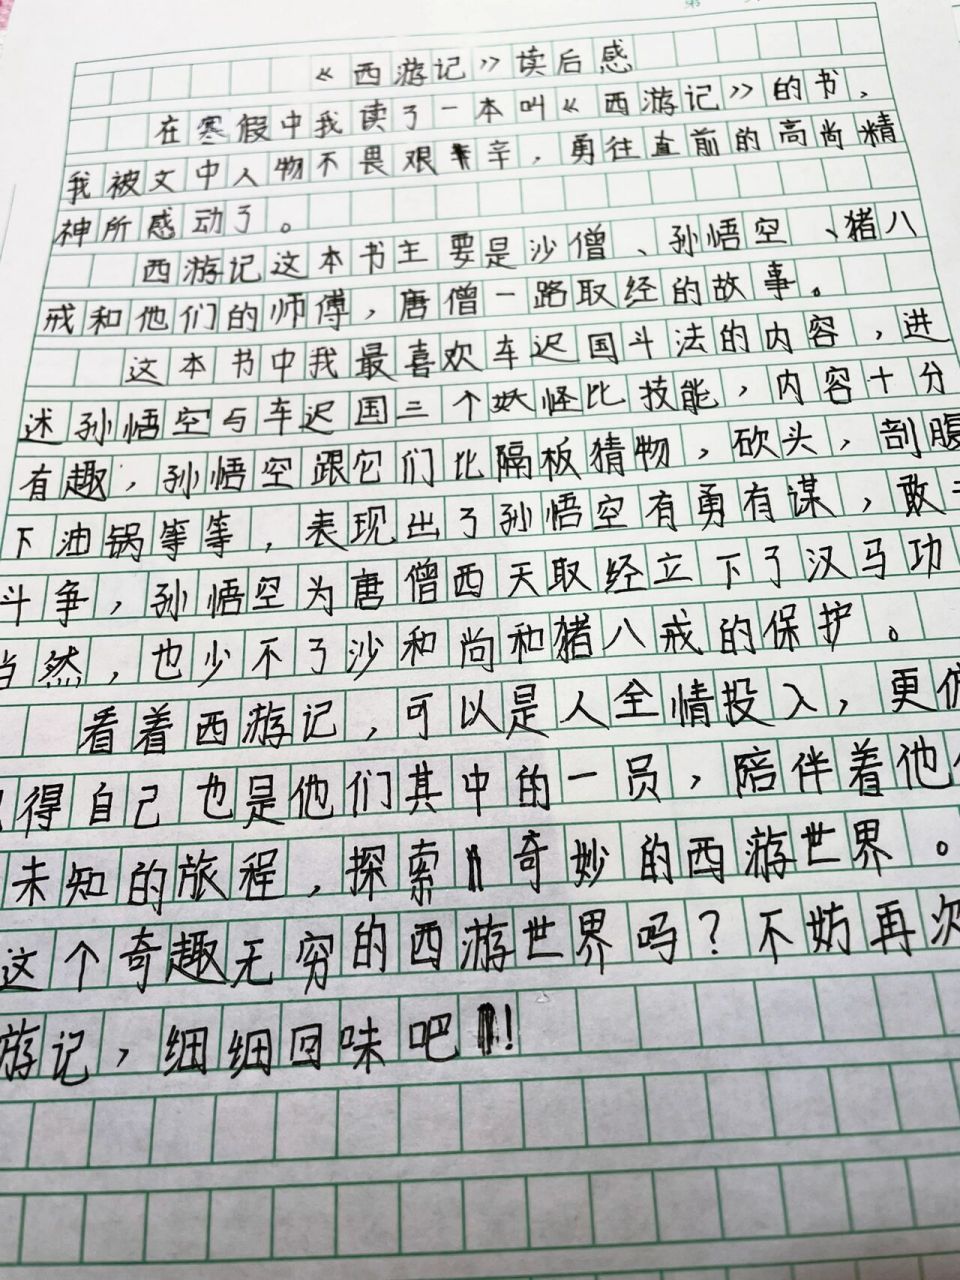 《西游记》读后感
在寒假中我读了一本叫《西游记》的书，
我被文中人物不畏艰辛，勇往直前的高尚精
神所感动了。
西游记这本书主要是沙僧、孙悟空、猪八
戒和他们的师傅，唐僧一路取经的故事。
这本书中我最喜欢车迟国斗法的内容，进
述孙悟空与车迟国三个妖怪比技能，内容十分
有趣，孙悟空跟它们比隔板猜物，砍头，剖腹
下油锅等等，表现出了孙悟空有勇有谋，敢
斗争，孙悟空为唐僧西天取经立下了汉马功
当然，也少不了沙和尚和猪八戒的保护。
看着西游记，可以是人全情投入，更
得自己也是他们其中的一员，陪伴着他
未知的旅程，探索奇妙的西游世界。
这个奇趣无穷的西游世界吗？不妨再次
游记，细细回味吧！